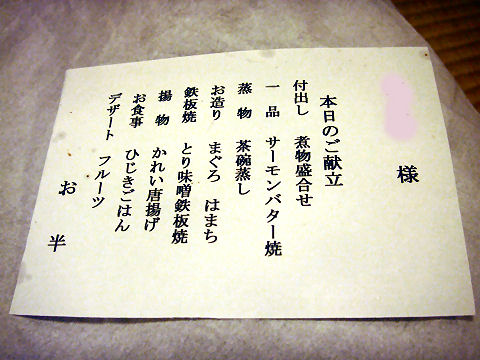 様
本日のご献立
付出し 煮物盛合せ
一品 サーモンバター焼
蒸物 茶碗蒸し
お造り まぐろ はまち
鉄板焼 とり味噌鉄板焼
揚物 かれい唐揚げ
お食事 ひじきごはん
デザート フルーツ
お半